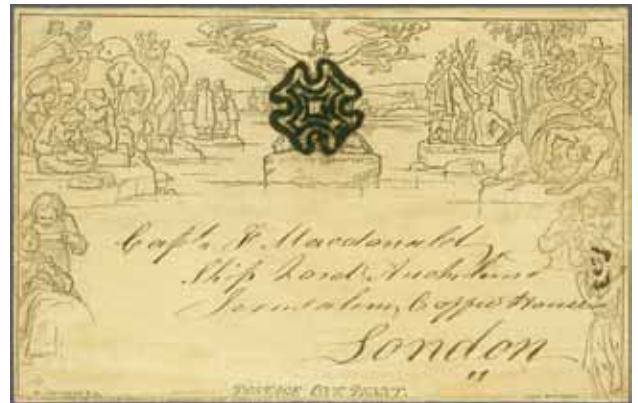 Capt. W. Macdonald
Ship Lord Auckland
Jerusalem Coffee House
London
POSTAGE ONE PENNY.